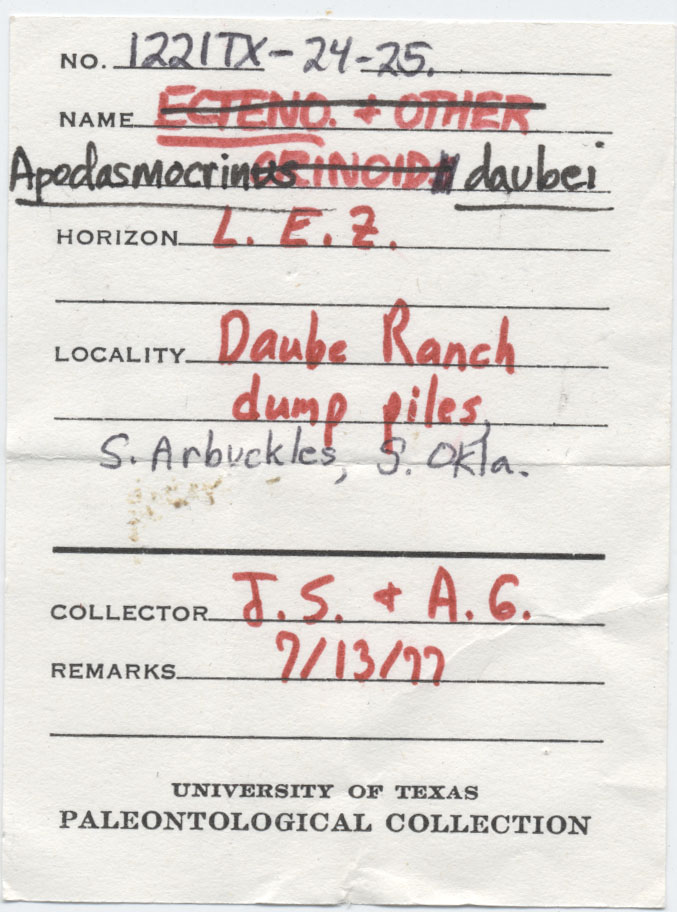 NO. 1221TX-24-25.
NAME ECTENO. + OTHER
CRINOID
Apodasmocrinus daubei
HORIZON L. E. Z.
LOCALITY Daube Ranch
dump piles,
S. Arbuckles, S. Okla.
COLLECTOR J. S. + A. G.
REMARKS 7/13/77
UNIVERSITY OF TEXAS
PALEONTOLOGICAL COLLECTION